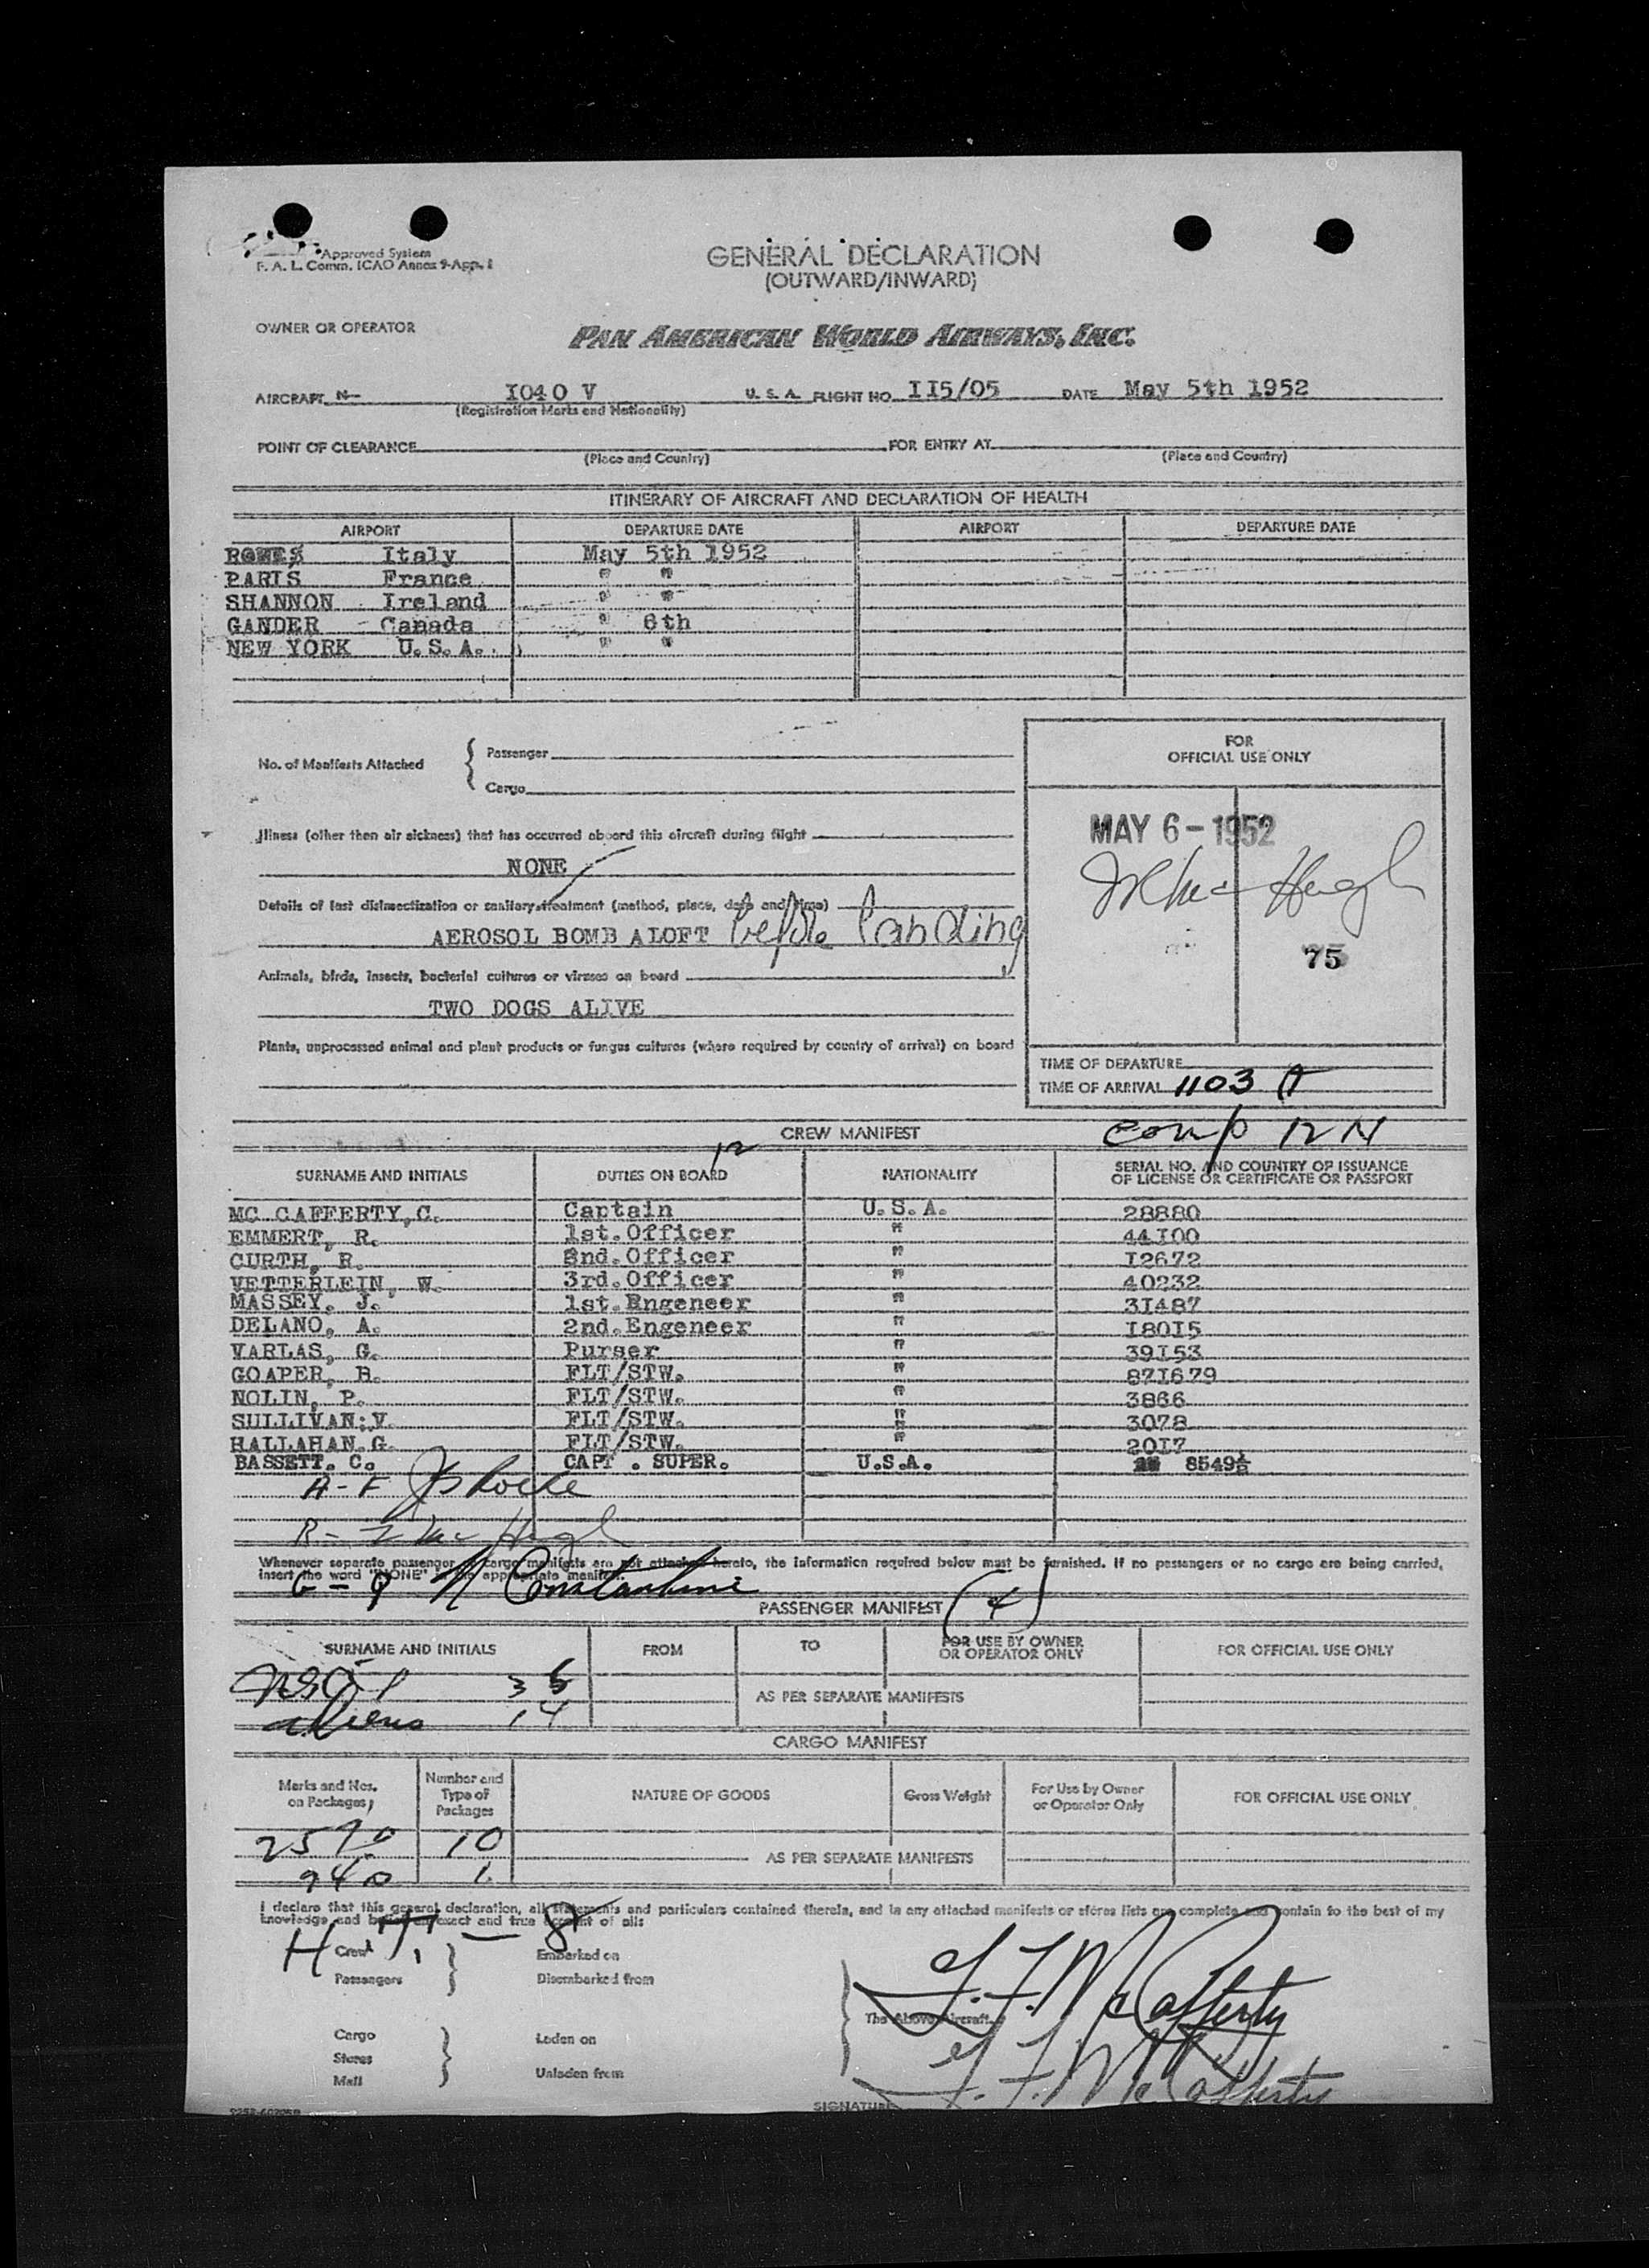 Approved System
F. A. L. Comm. ICAO Annex 9-App. 1
GENERAL DECLARATION
(OUTWARD/INWARD)
OWNER OR OPERATOR
PAN AMERICAN WORLD AIRWAYS, INC.
AIRCRAFT N- I040 V U. S. A. FLIGHT NO. II5/05 DATE May 5th 1952
(Registration Marks and Nationality)
POINT OF CLEARANCE FOR ENTRY AT
(Place and Country) (Place and Country)
ITINERARY OF AIRCRAFT AND DECLARATION OF HEALTH
AIRPORT DEPARTURE DATE AIRPORT DEPARTURE DATE
Italy May 5th 1952
PARIS France " "
SHANNON Ireland " "
GANDER - Canada " 6th
NEW YORK U.S.A. " "
No. of Manifests Attached { Passenger
Cargo
FOR
OFFICIAL USE ONLY
Illness (other than air sickness) that has occurred aboard this aircraft during flight
NONE
MAY 6 - 1952
Details of last disinsectization or sanitary treatment (method, place, date and time)
AEROSOL BOMB ALOFT before landing
75
Animals, birds, insects, bacterial cultures or viruses on board
TWO DOGS ALIVE
Plants, unprocessed animal and plant products or fungus cultures (where required by country of arrival) on board
TIME OF DEPARTURE
TIME OF ARRIVAL 1103 A
CREW MANIFEST comp 12 N
12
SURNAME AND INITIALS DUTIES ON BOARD NATIONALITY SERIAL NO. AND COUNTRY OF ISSUANCE
OF LICENSE OR CERTIFICATE OR PASSPORT
MC CAFFERTY,C. Captain U.S.A. 28880
EMMERT, R. 1st.Officer " 44I00
CURTH, R. 2nd.Officer " I2672
VETTERLEIN, W. 3rd.Officer " 40232
MASSEY. J. 1st.Engeneer " 3I487
DELANO, A. 2nd.Engeneer " I80I5
VARLAS, G. Purser " 39I53
GOAPER, H. FLT/STW. " 87I679
NOLIN, P. FLT/STW. " 3866
SULLIVAN:V. FLT/STW. " 3078
HALLAHAN.G. FLT/STW. " 20I7
BASSETT. C. CAPT . SUPER. U.S.A. 8549½
A-F
R-
Whenever separate passenger or cargo manifests are not attached hereto, the information required below must be furnished. If no passengers or no cargo are being carried,
insert the word "NONE" in the appropriate manifest.
G - N Constantine
PASSENGER MANIFEST (4)
SURNAME AND INITIALS FROM TO FOR USE BY OWNER
OR OPERATOR ONLY FOR OFFICIAL USE ONLY
35
AS PER SEPARATE MANIFESTS
aliens 14
CARGO MANIFEST
Marks and Nos.
on Packages Number and
Type of
Packages NATURE OF GOODS Gross Weight For Use by Owner
or Operator Only FOR OFFICIAL USE ONLY
10
AS PER SEPARATE MANIFESTS
940 1
I declare that this general declaration, all statements and particulars contained therein, and in any attached manifests or stores lists are complete and contain to the best of my
knowledge and belief an exact and true account of all:
Crew
Passengers } Embarked on
Disembarked from
F.F. McCafferty
The Above Aircraft.
Cargo
Stores
Mail } Laden on
Unladen from
F.F. McCafferty
SIGNATURE